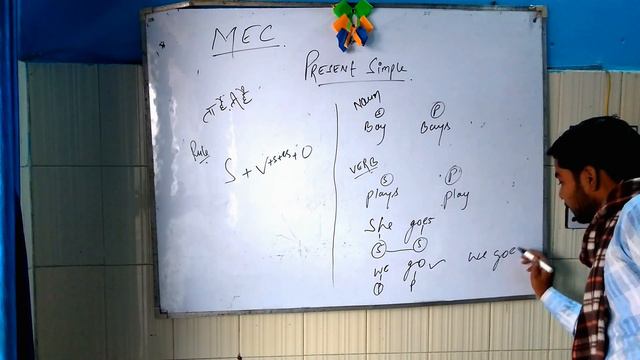 MEC
PRESENT Simple
Rule
S + V+s+es + O
Noun
S P
Boy Boys
VERB
S P
plays play
She goes
S S
we go ✓ we goes
P P